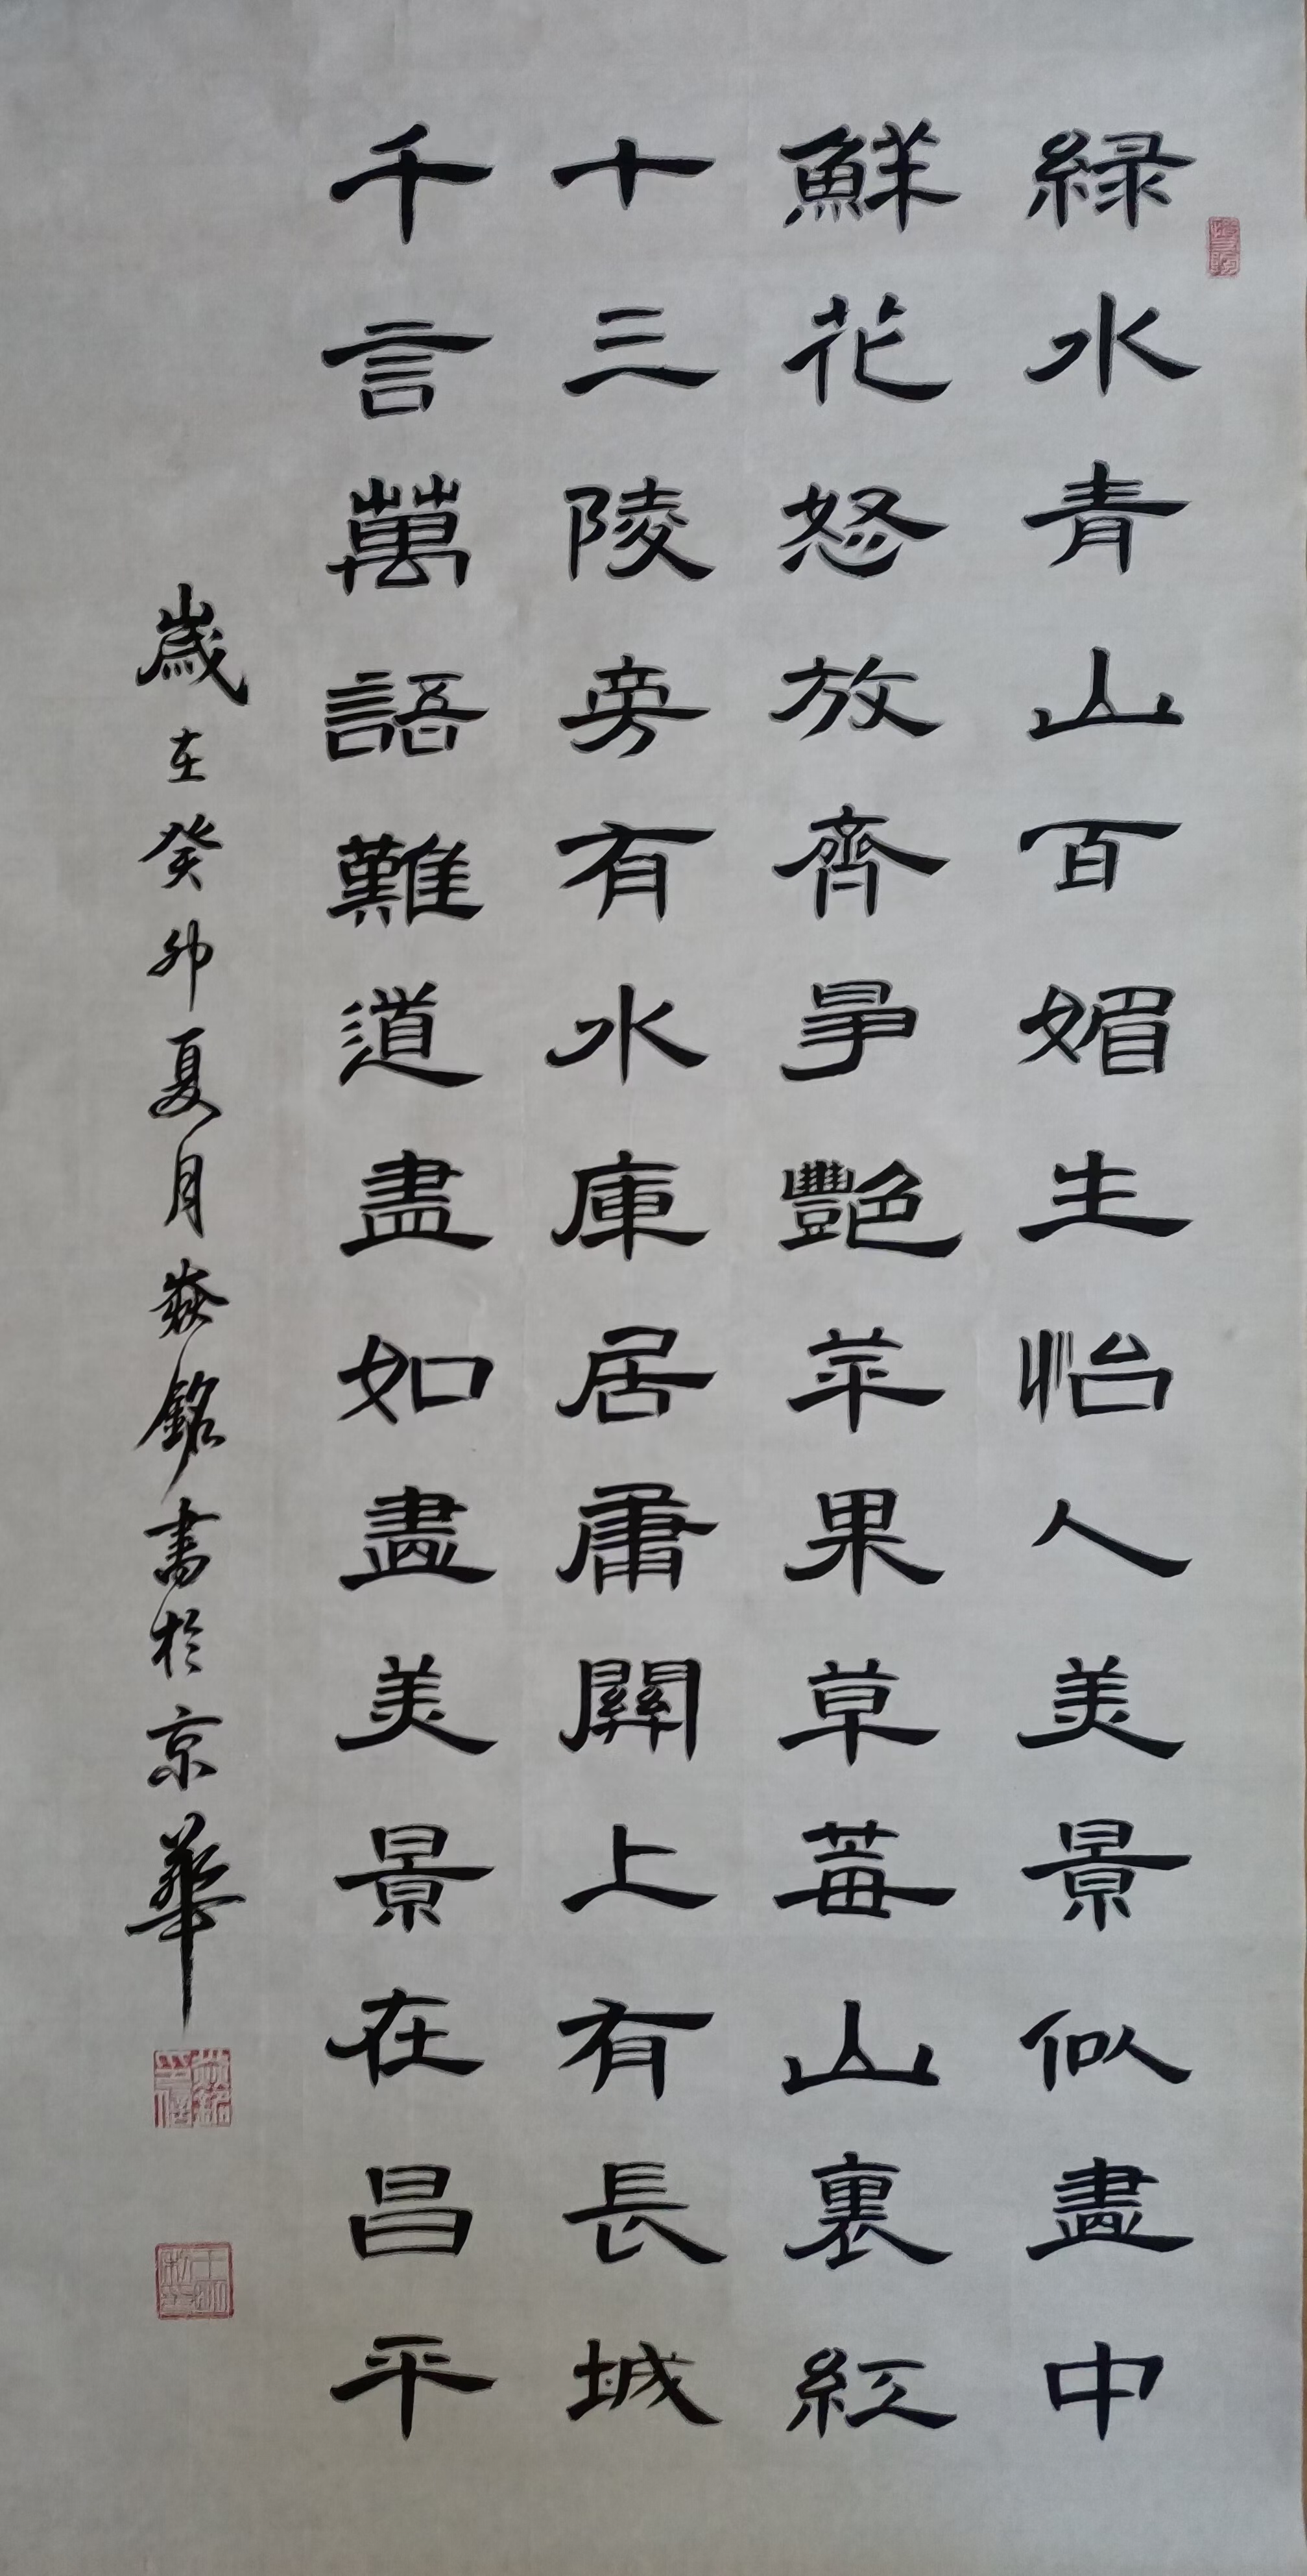 緑水青山百媚生怡人美景似畫中
鮮花怒放齊爭艷苹果草莓山裏紅
十三陵旁有水庫居庸關上有長城
千言萬語難道盡如畫美景在昌平
歲在癸卯夏月銘書於京華